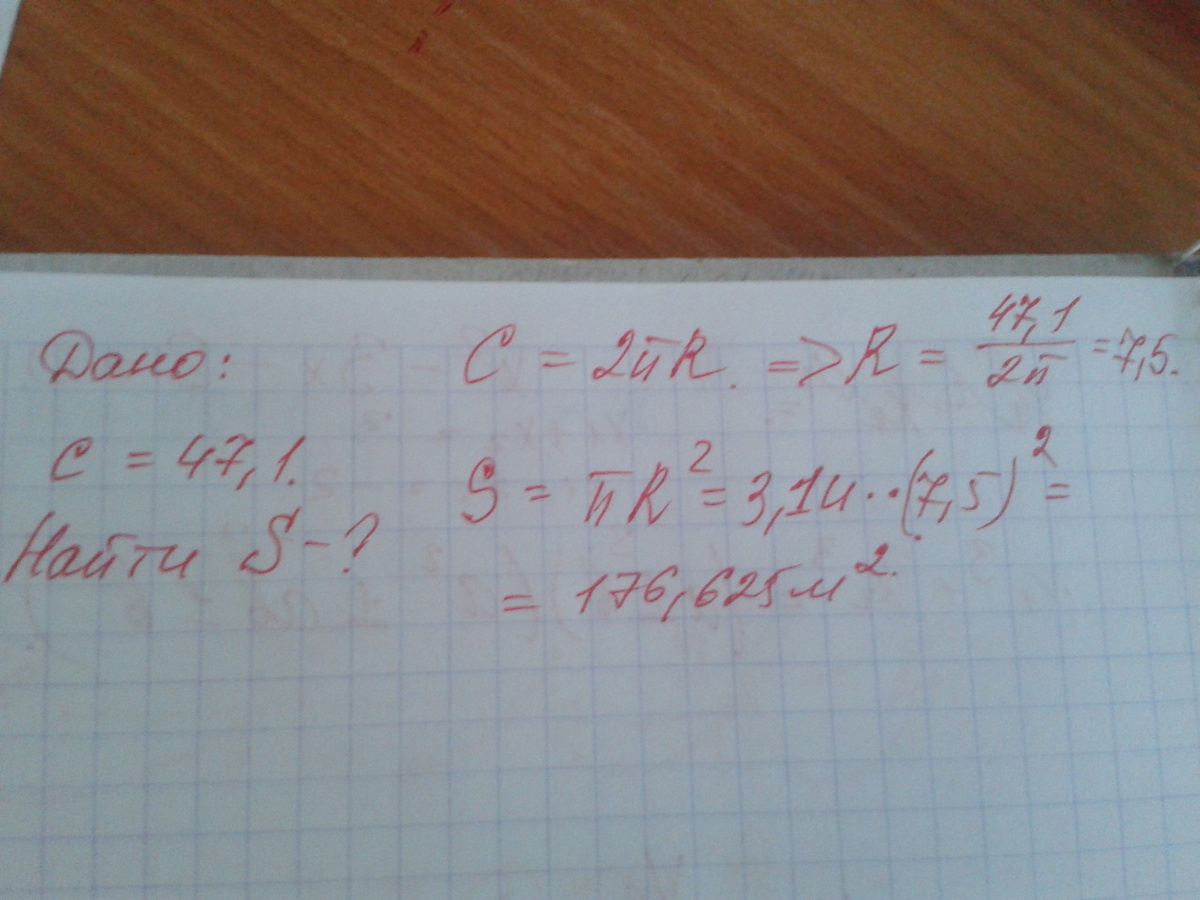 Дано:
C = 47,1.
Найти S-?
C = 2πR. => R = 47,1/2π = 7,5.
S = πR² = 3,14··(7,5)² =
= 176,625 м².